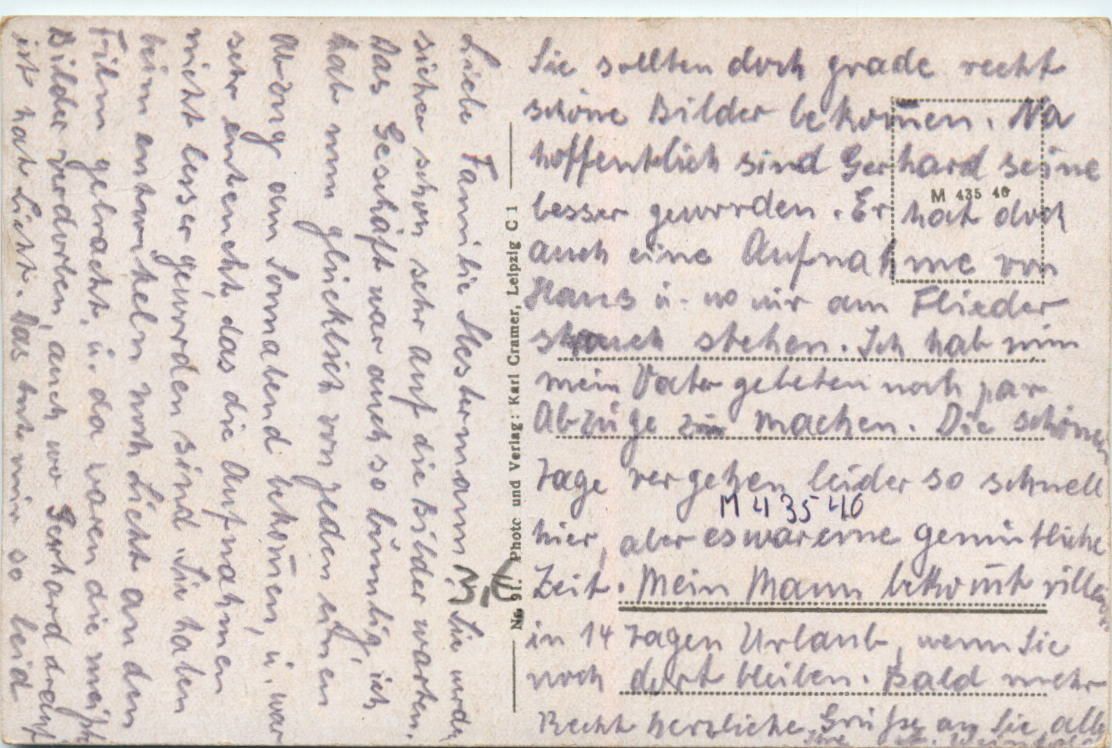 Liebe Familie Stestermann, Sie werden
sicher schon sehr auf die Bilder warten.
Das Geschäft war auch so bummlig, ich
hab nun glücklich von jeden einen
Abzug am Sonnabend bekom̄en, u. war
sehr enteucht, das die Aufnahmen
nicht besser geworden sind. Sie haben
beim entwickeln noch Licht an den
Film gebracht, u. da waren die meisten
Bilder verdorben, auch wo Gerhard drauf
ist hat Licht. Das tut mir so leid
Sie sollten doch grade recht
schöne Bilder bekom̄en. Na
hoffentlich sind Gerhard seine
besser geworden. Er hat doch
auch eine Aufnahme von
Hans u. wo wir am Flieder
strauch stehen. Ich hab nun
mein Vater gebeten noch par
Abzüge zu machen. Die schönen
Tage vergehen leider so schnell
hier, aber es war eine gemütliche
Zeit. Mein Mann bekom̄t
in 14 Tagen Urlaub, wenn Sie
noch dort bleiben. Bald mehr
Recht herzliche Grüße an Sie alle
M 435 40
M 435 40
3,6
No. 911. Photo und Verlag: Karl Cramer, Leipzig C 1